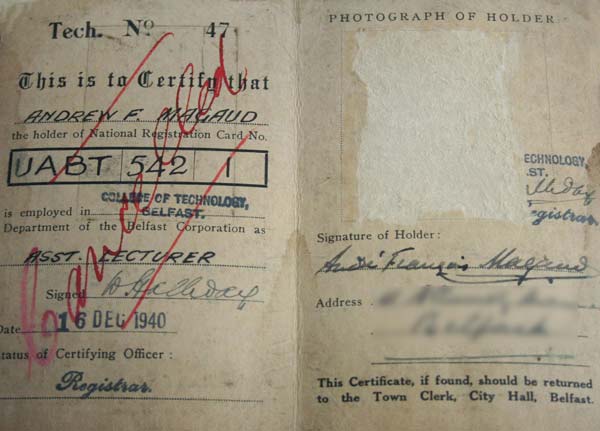 Tech. No 47
This is to Certify that
ANDREW F. MAGAUD
the holder of National Registration Card No.
UABT 542 1
COLLEGE OF TECHNOLOGY,
BELFAST.
is employed in
Department of the Belfast Corporation as
ASST. LECTURER
Signed D Holliday
Date 16 DEC 1940
Status of Certifying Officer :
Registrar.
Cancelled
PHOTOGRAPH OF HOLDER
ECHNOLOGY,
ST.
lliday
egistrar
Signature of Holder :
André François Magaud
Address
This Certificate, if found, should be returned
to the Town Clerk, City Hall, Belfast.